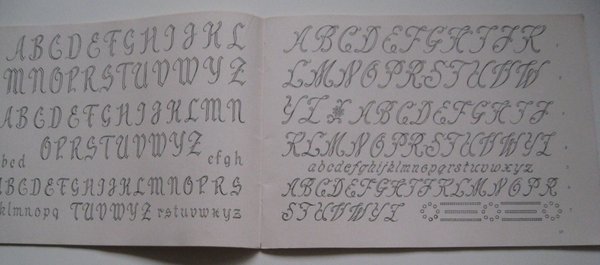 ABCDEFGHIJKL
MNOPRSTUVWYZ
ABCDEFGHIJKLMN
OPRSTUVWYZ
bcd efgh
ABCDEFGHIJKLMNOPRS
klmnopq TUVWYZ rstuvwxyz
ABCDEFGHIJK
LMNOPRSTUVW
YZ ABCDEFGHIJ
KLMNOPRSTUVWYZ
abcdefghijklmnopqrstuvwxyz
ABCDEFGHIJKLMNOPR
STUVWYZ